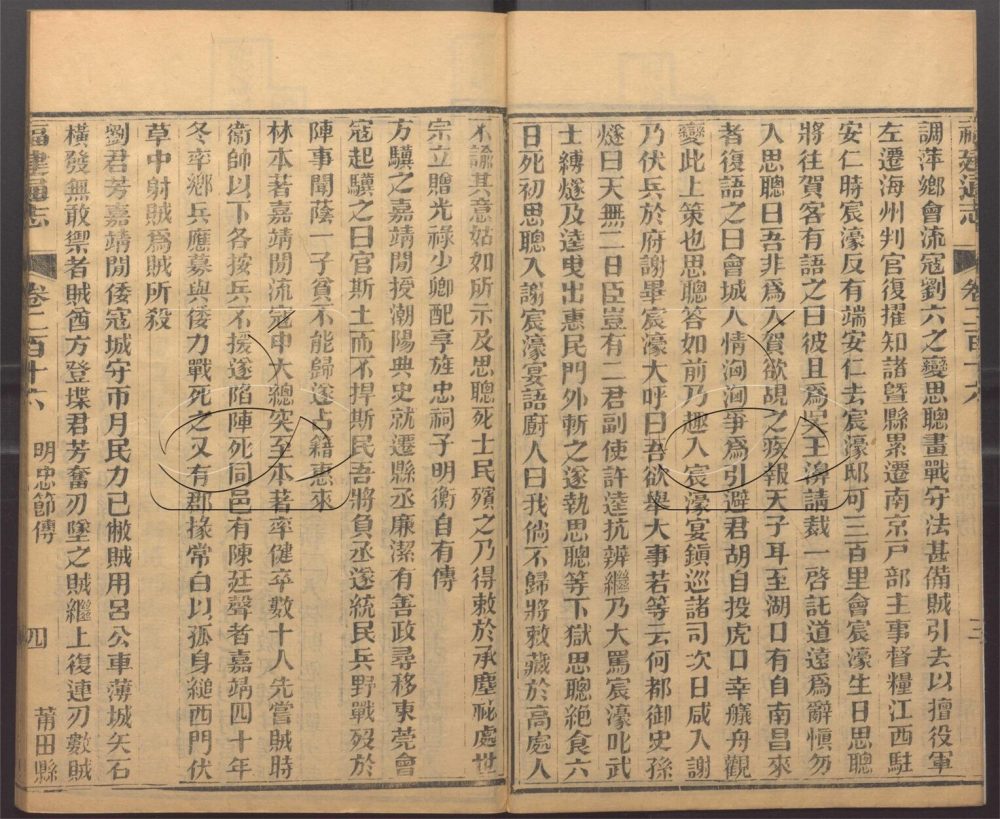 福建通志 卷二百十六 三
調萍鄉會流寇劉六之變思聰畫戰守法甚備賊引去以擅役軍
左遷海州判官復擢知諸暨縣累遷南京戸部主事督糧江西駐
安仁時宸濠反有端安仁去宸濠邸可三百里會宸濠生日思聰
將往賀客有語之曰彼且爲吳王濞請裁一啓託道遠爲辭愼勿
入思聰曰吾非爲入賀欲覘之疾報天子耳至湖口有自南昌來
者復語之曰會城人情洶洶爭爲引避君胡自投虎口幸艤舟觀
變此上策也思聰答如前乃趣入宸濠宴鎭巡諸司次日咸入謝
乃伏兵於府謝畢宸濠大呼曰吾欲舉大事若等云何都御史孫
燧曰天無二日臣豈有二君副使許逵抗辨繼乃大罵宸濠叱武
士縛燧及逵曳出惠民門外斬之遂執思聰等下獄思聰絶食六
日死初思聰入謝宸濠宴語廚人曰我倘不歸將敕藏於高處人
不諭其意姑如所示及思聰死士民殯之乃得敕於承塵祕處世
宗立贈光祿少卿配享旌忠祠子明衡自有傳
方驥之嘉靖閒授潮陽典史就遷縣丞廉潔有善政尋移東莞會
寇起驥之曰官斯土而不捍斯民吾將負丞遂統民兵野戰歿於
陣事聞蔭一子貧不能歸遂占籍惠來
林本著嘉靖閒流寇申大總突至本著率健卒數十人先嘗賊時
衞師以下各按兵不援遂陷陣死同邑有陳廷聲者嘉靖四十年
冬率鄉兵應募與倭力戰死之又有郡掾常白以孤身縋西門伏
草中射賊爲賊所殺
劉君芳嘉靖閒倭寇城守帀月民力已敝賊用呂公車薄城矢石
橫發無敢禦者賊酋方登堞君芳奮刃墜之賊繼上復連刃數賊
福建通志 卷二百十六 明忠節傳 四 莆田縣